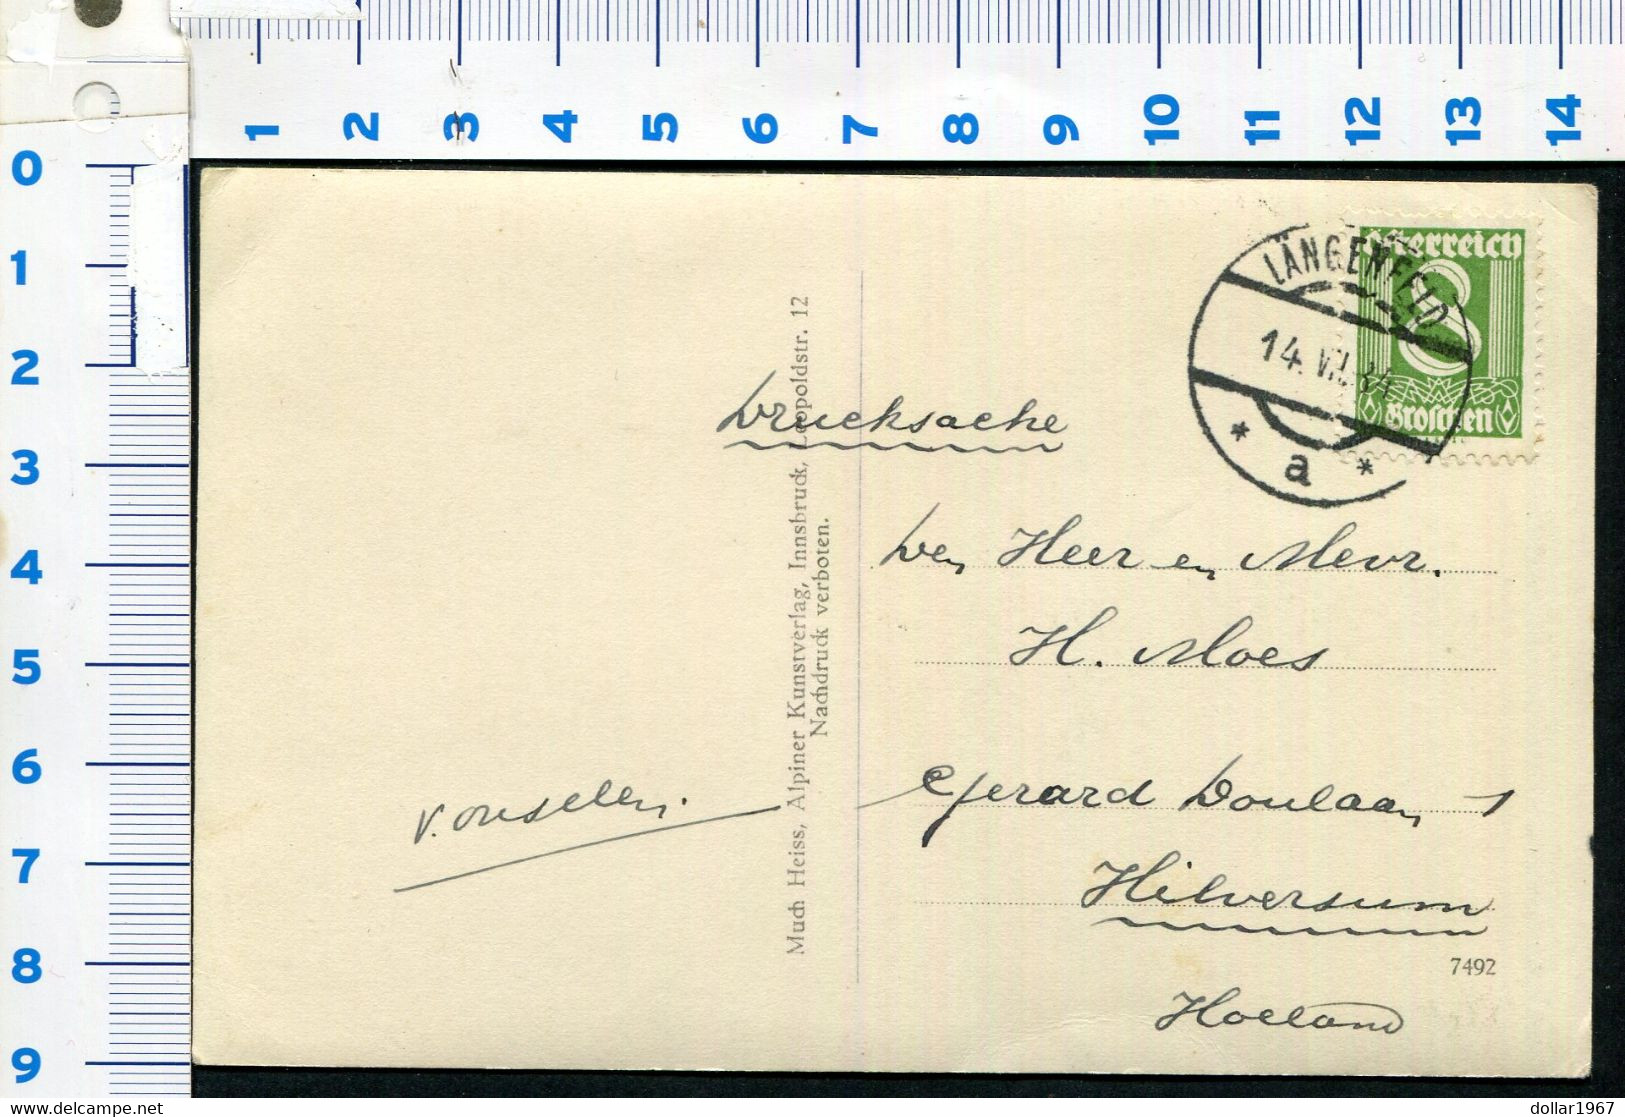 1 2 3 4 5 6 7 8 9 10 11 12 13 14
0
1
2
3
4
5
6
7
8
9
LÄNGENFELD
14. VII. 34
* a *
Österreich
8
Groschen
Drucksache
Den Heer en Mevr.
H. Moes
Gerard Doulaan 1
Hilversum
Holland
7492
Much Heiss, Alpiner Kunstverlag, Innsbruck, Leopoldstr. 12
Nachdruck verboten.
dollar1967